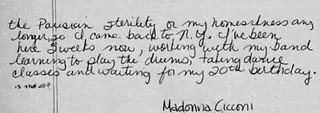 the Parisian sterility or my homesickness any
longer, so I came back to N.Y. I've been
here 3 weeks now, working with my band
learning to play the drums, taking dance
classes and waiting for my 20th birthday.
Madonna Cicconi